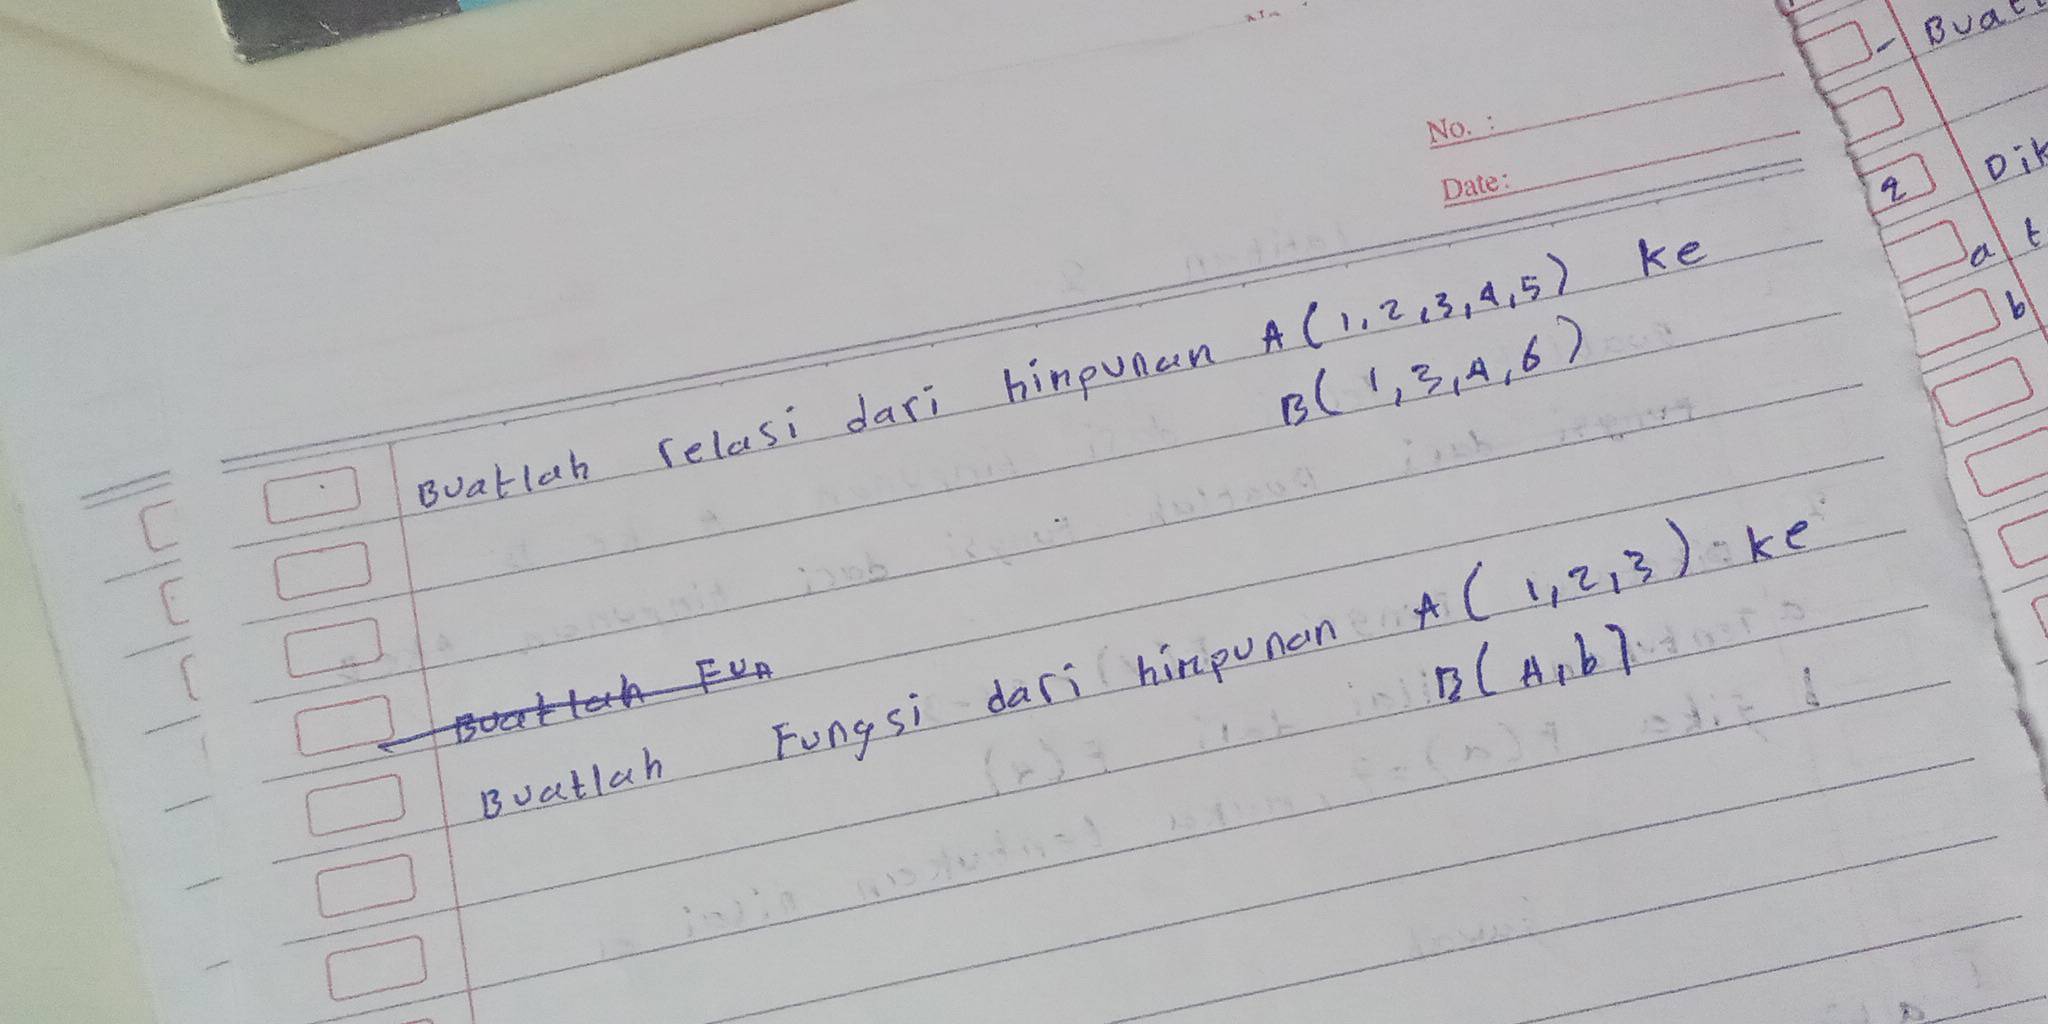 No. :
Date:
Buatlah relasi dari himpunan A ( 1, 2, 3, 4, 5 ) ke
B ( 1, 3, 4, 6 )
Buatlah Fun
Buatlah Fungsi dari himpunan A ( 1, 2, 3 ) ke
B ( A, b )
- Buatl
2 Dik
a t
b